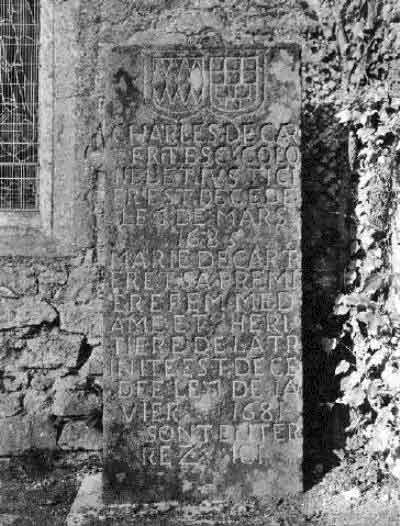 CHARLES DE CA
RERT ESC COLO
NEL ET IVSTICI
R EST DECEDE
LE 1 DE MARS
1685
MARIE DE CART
ERET SA PREMI
ERE FEM MED
AME ET HERI
TIERE DE LA TR
INITE EST DECE
DEE LE DE IA
VIER 1681
SONT ENTER
REZ ICI